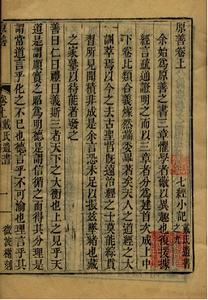 原善卷上 七經小記之九 戴氏遺書
余始爲原善之書三章懼學者蔽以異趣也復援據
經言疏通證明之而以三章者分爲建首次成上中
下卷比類合義燦然端委畢著矣天人之道經之大
訓萃焉以今之去古聖哲旣遠治經之士莫能綜貫
習所見聞積非成是余言恐未足以振茲墜緒也藏
之家塾以待能者發之
善曰仁曰禮曰義斯三者天下之大衡也上之見乎天
道是謂順實之昭爲明德是謂信循之而得其分理是
謂常道言乎化之不已也德言乎不可渝也理言乎其
原善 卷上 戴氏遺書 一 微波榭刻